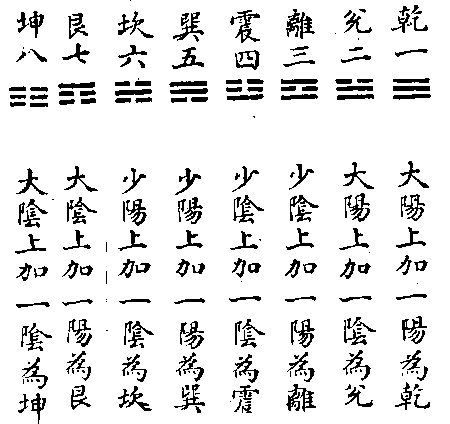 乾一
兌二
離三
震四
巽五
坎六
艮七
坤八
大陽上加一陽為乾
大陽上加一陰為兌
少陰上加一陽為離
少陰上加一陰為震
少陽上加一陽為巽
少陽上加一陰為坎
大陰上加一陽為艮
大陰上加一陰為坤